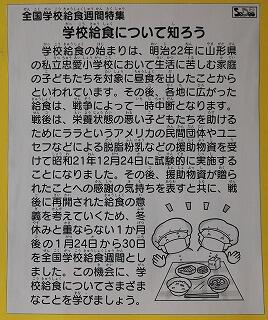 全国学校給食週間特集
学校給食について知ろう
学校給食の始まりは、明治22年に山形県
の私立忠愛小学校において生活に苦しむ家庭
の子どもたちを対象に昼食を出したことから
といわれています。その後、各地に広がった
給食は、戦争によって一時中断となります。
戦後は、栄養状態の悪い子どもたちを助ける
ためにララというアメリカの民間団体やユニ
セフなどによる脱脂粉乳などの援助物資を受
けて昭和21年12月24日に試験的に実施する
ことになりました。その後、援助物資が贈ら
れたことへの感謝の気持ちを表すと共に、戦
後に再開された給食の意
義を考えていくため、冬
休みと重ならない1か月
後の1月24日から30日
を全国学校給食週間とし
ました。この機会に、学
校給食についてさまざま
なことを学びましょう。